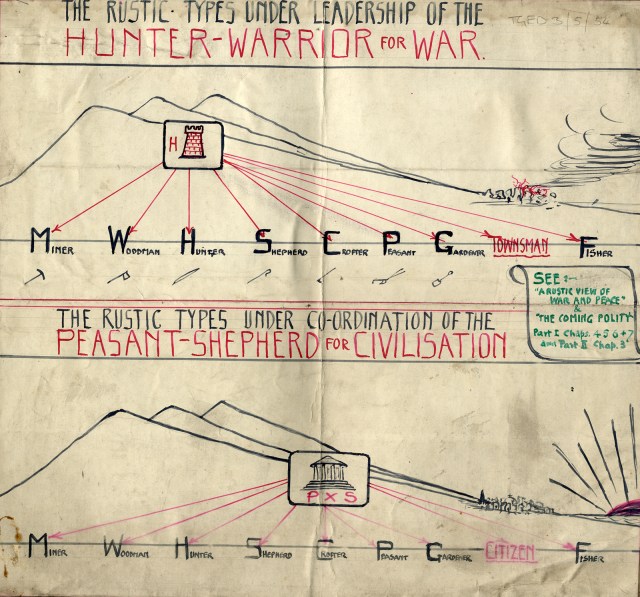 THE RUSTIC TYPES UNDER LEADERSHIP OF THE
HUNTER-WARRIOR FOR WAR.
TGED 3/5/56
H
MINER WOODMAN HUNTER SHEPHERD CROFTER PEASANT GARDENER TOWNSMAN FISHER
SEE:-
"A RUSTIC VIEW OF
WAR AND PEACE"
&
"THE COMING POLITY"
Part I Chaps. 4 5 6 + 7
and Part II Chap. 3
THE RUSTIC TYPES UNDER CO-ORDINATION OF THE
PEASANT-SHEPHERD FOR CIVILISATION
P X S
MINER WOODMAN HUNTER SHEPHERD CROFTER PEASANT GARDENER CITIZEN FISHER